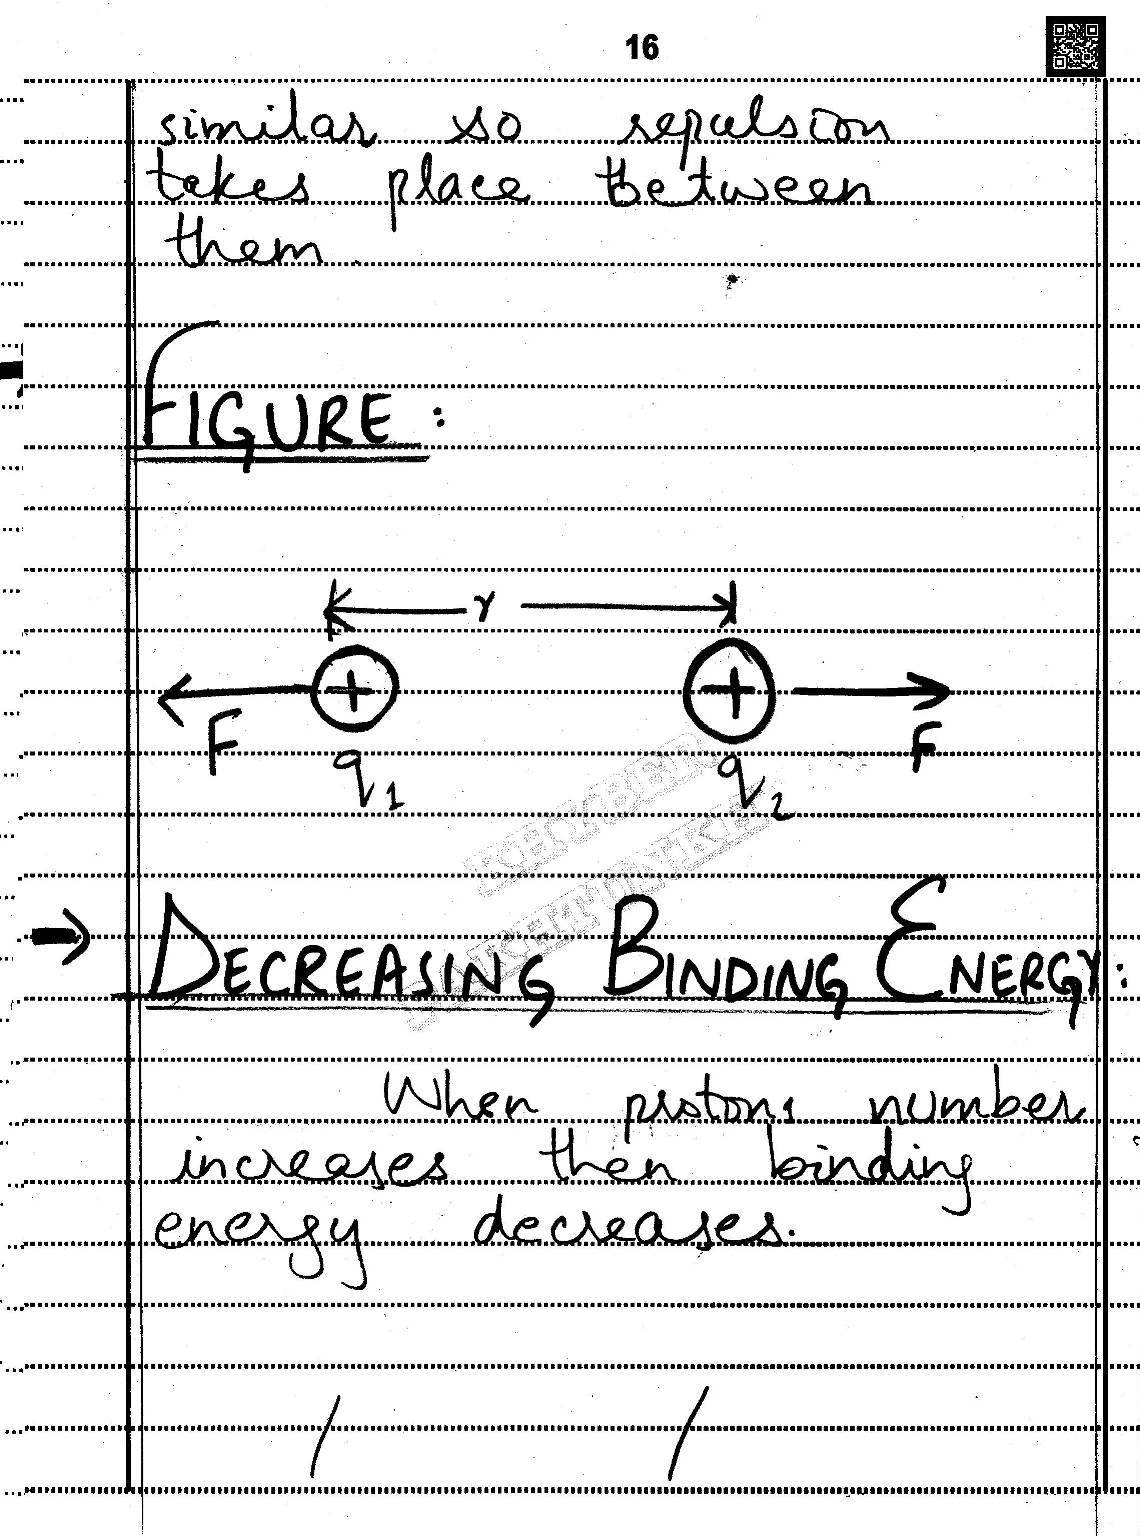 16
similar so repulsion
takes place between
them.
FIGURE:
r
F
F
q1
q2
KHYBER
PAKHTUNKHWA
DECREASING BINDING ENERGY:
When protons number
increases then binding
energy decreases.